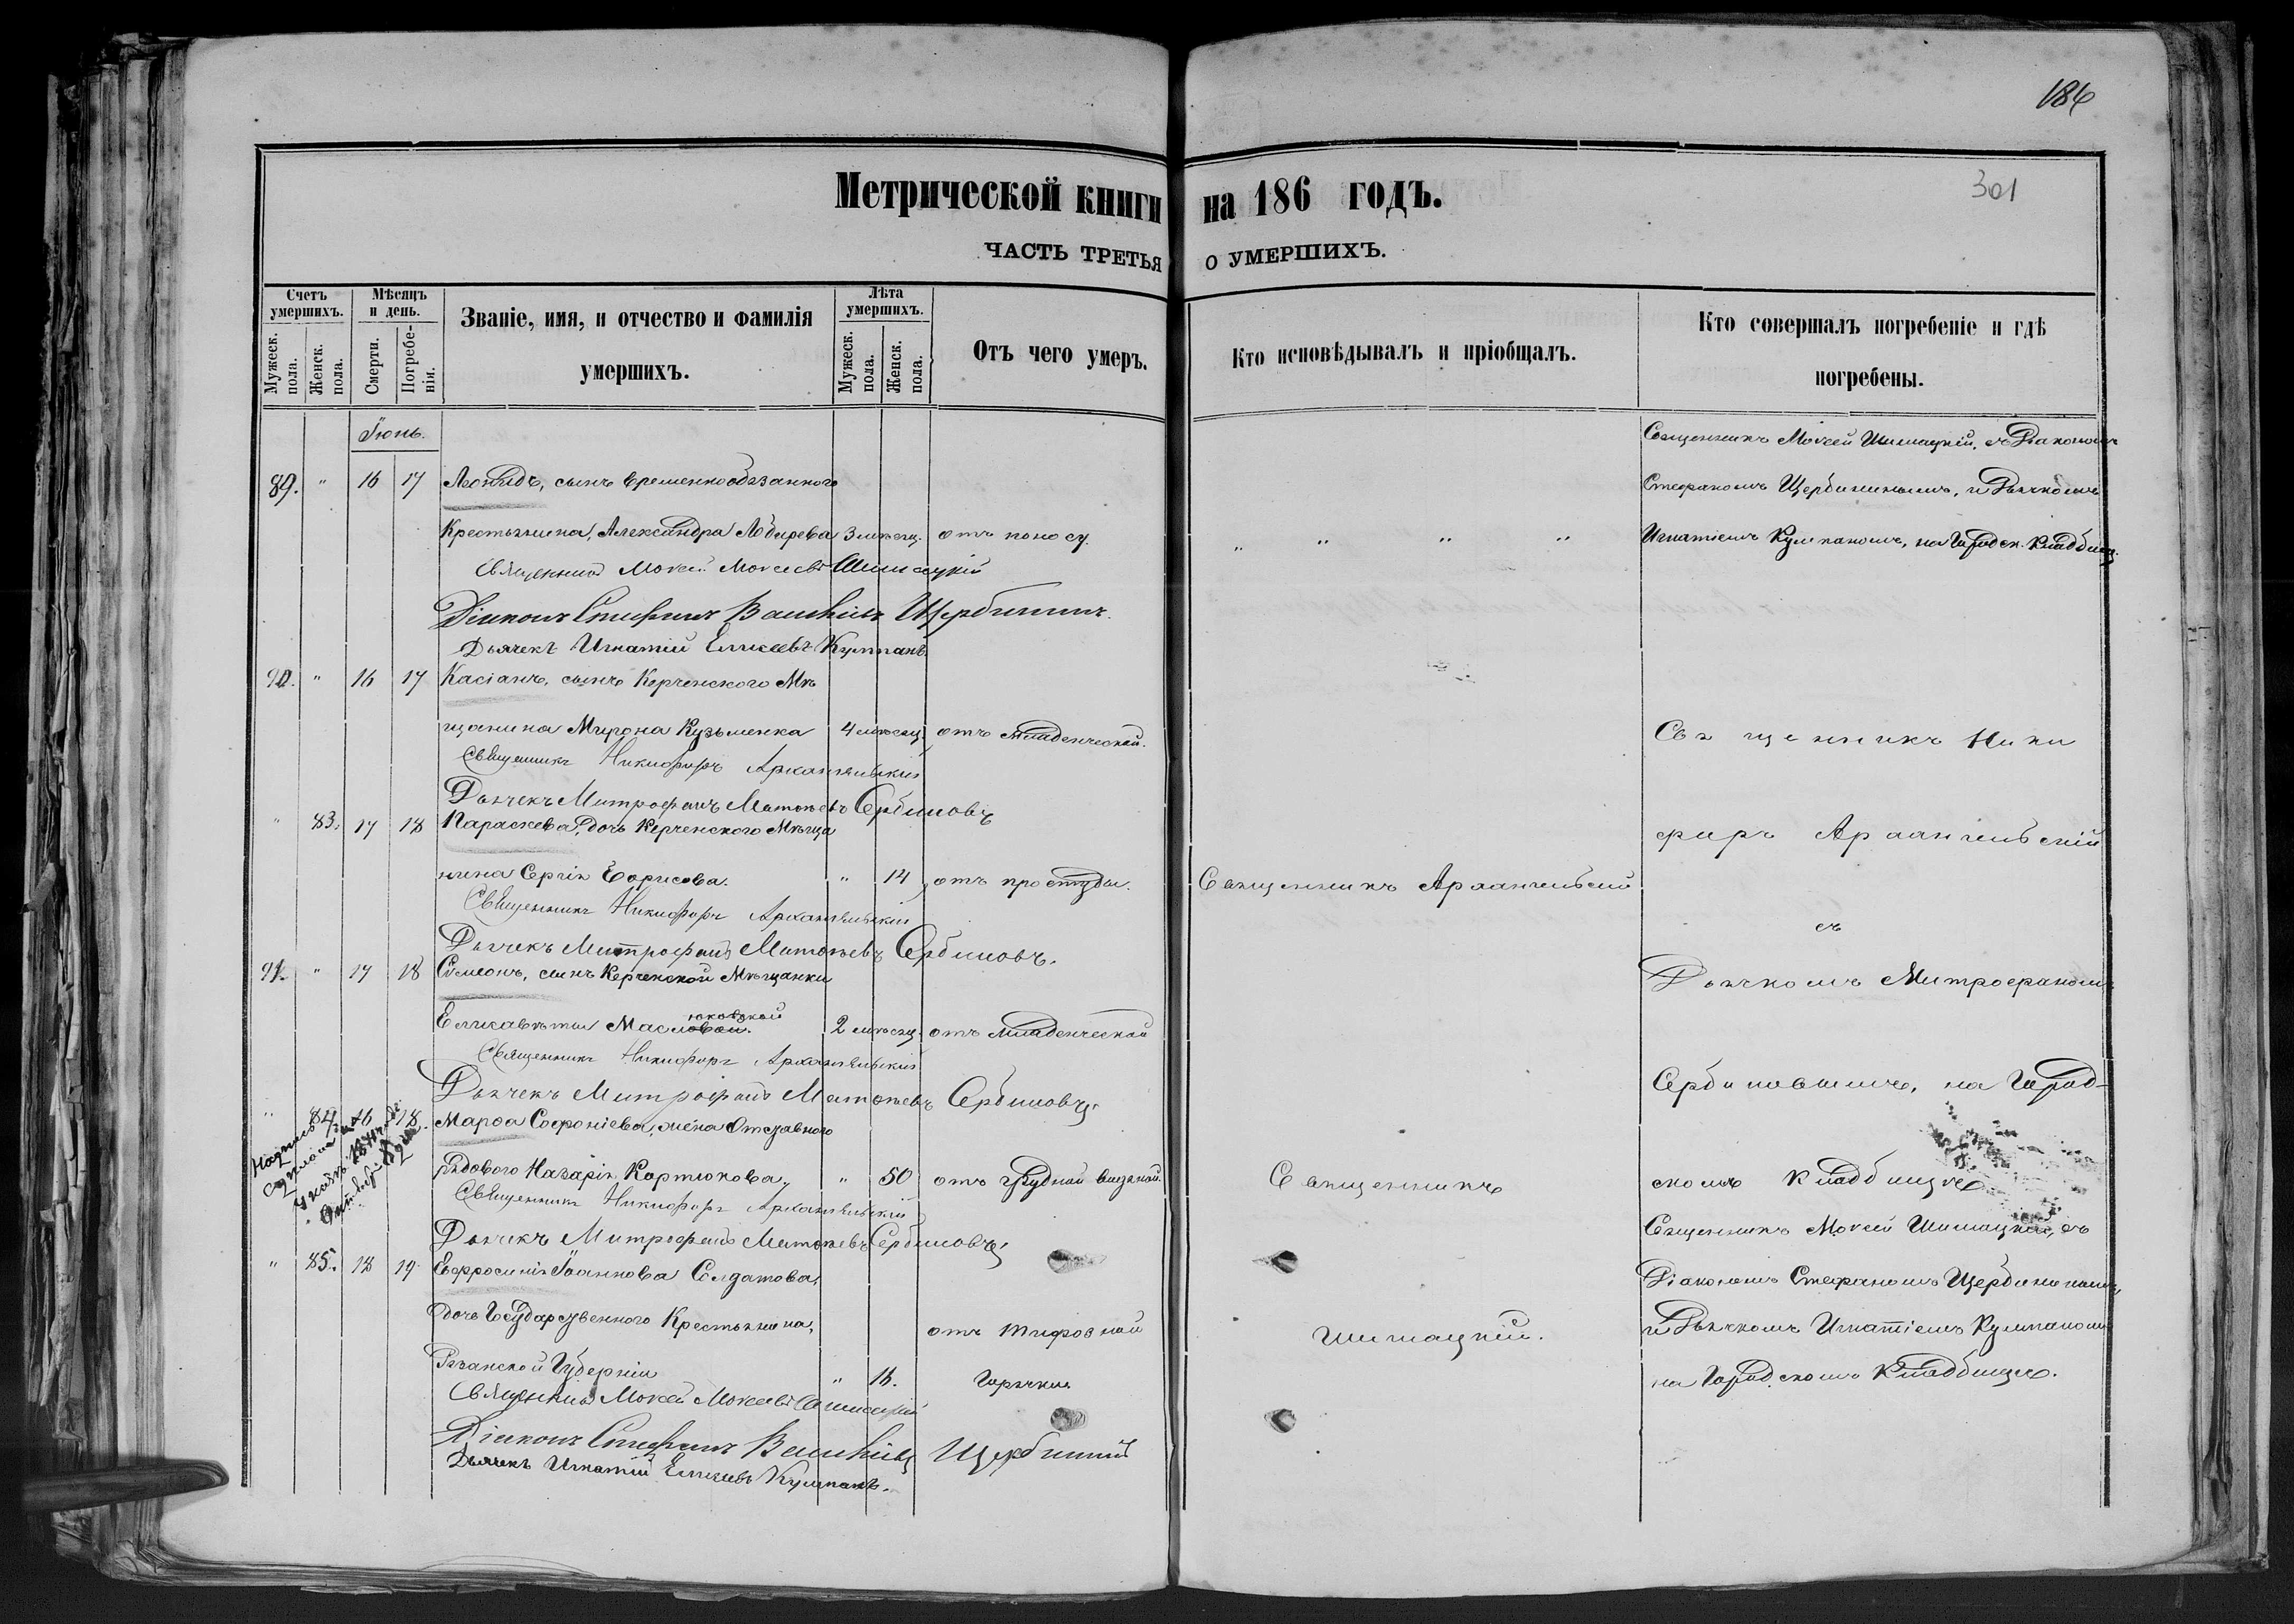 186
301
Метрической книги на 186 годъ.
ЧАСТЬ ТРЕТЬЯ О УМЕРШИХЪ.
Счетъ умершихъ.
Мужеск. пола.
Женск. пола.
Мѣсяцъ и день.
Смерти.
Погребенія.
Званіе, имя, и отчество и фамилія умершихъ.
Лѣта умершихъ.
Мужеск. пола.
Женск. пола.
Отъ чего умеръ.
Кто исповѣдывалъ и пріобщалъ.
Кто совершалъ погребеніе и гдѣ погребены.
Іюнь.
89. " 16 17 Леонидъ, сынъ временнообязаннаго
Крестьянина, Александра Лобырева 3 мѣсяц. отъ поносу.
Священникъ Мокей Мокеевъ Шимацкій
Діаконъ Стефанъ Щербининъ.
Дьячекъ Игнатій Елисеевъ Кулпанъ.
Священникъ Мокей Шимацкій, съ Діакономъ
Стефаномъ Щербининымъ, и Дьячкомъ
Игнатіемъ Кулпаномъ, на Городск. Кладбищ.
90. " 16 17 Касіанъ, сынъ Керченского Мѣ
щанина Мирона Кузьменка 4 мѣсяц. отъ младенческой.
Священникъ Никифоръ Архангельскій
Дьячекъ Митрофанъ Матвѣевъ Сербиновъ
" 83. 17 18 Параскева, дочь Керченского Мѣща
нина Сергія Борисова. " 14 отъ простуды.
Священникъ Архангельскій
Священникъ Никифоръ Архангельскій
Дьячекъ Митрофанъ Матвѣевъ Сербиновъ.
91. " 17 18 Симеонъ, сынъ Керченской Мѣщанки
юковской
Елисаветы Масловой. 2 мѣсяц. отъ младенческой
Священникъ Никифоръ Архангельскій
Дьячекъ Митрофанъ Матвѣевъ Сербиновъ
" 84. 16 18. Марѳа Софроніева, жена Отставного
рядового Назарія Картюкова. " 50 отъ грудной
Священникъ Никифоръ Архангельскій
Дьячекъ Митрофанъ Матвѣевъ Сербиновъ
Священникъ Ники
форъ Архангельскій
съ
Дьячкомъ Митрофаномъ
Сербиновымъ, на Город-
скомъ Кладбищѣ
" 85. 18 19 Евфросинія Іоаннова Солдатова,
дочь Государственного Крестьянина,
Рязанской Губерніи " 16.
отъ тифозной
горячки
Священникъ Мокей Мокеевъ Шимацкій
Діаконъ Стефанъ Щербининъ
Дьячекъ Игнатій Елисеевъ Кулпанъ.
Священникъ
Шимацкій.
Священникъ Мокей Шимацкій, съ
Діакономъ Стефаномъ Щербининымъ,
и Дьячкомъ Игнатіемъ Кулпаномъ
на Городскомъ Кладбищѣ.